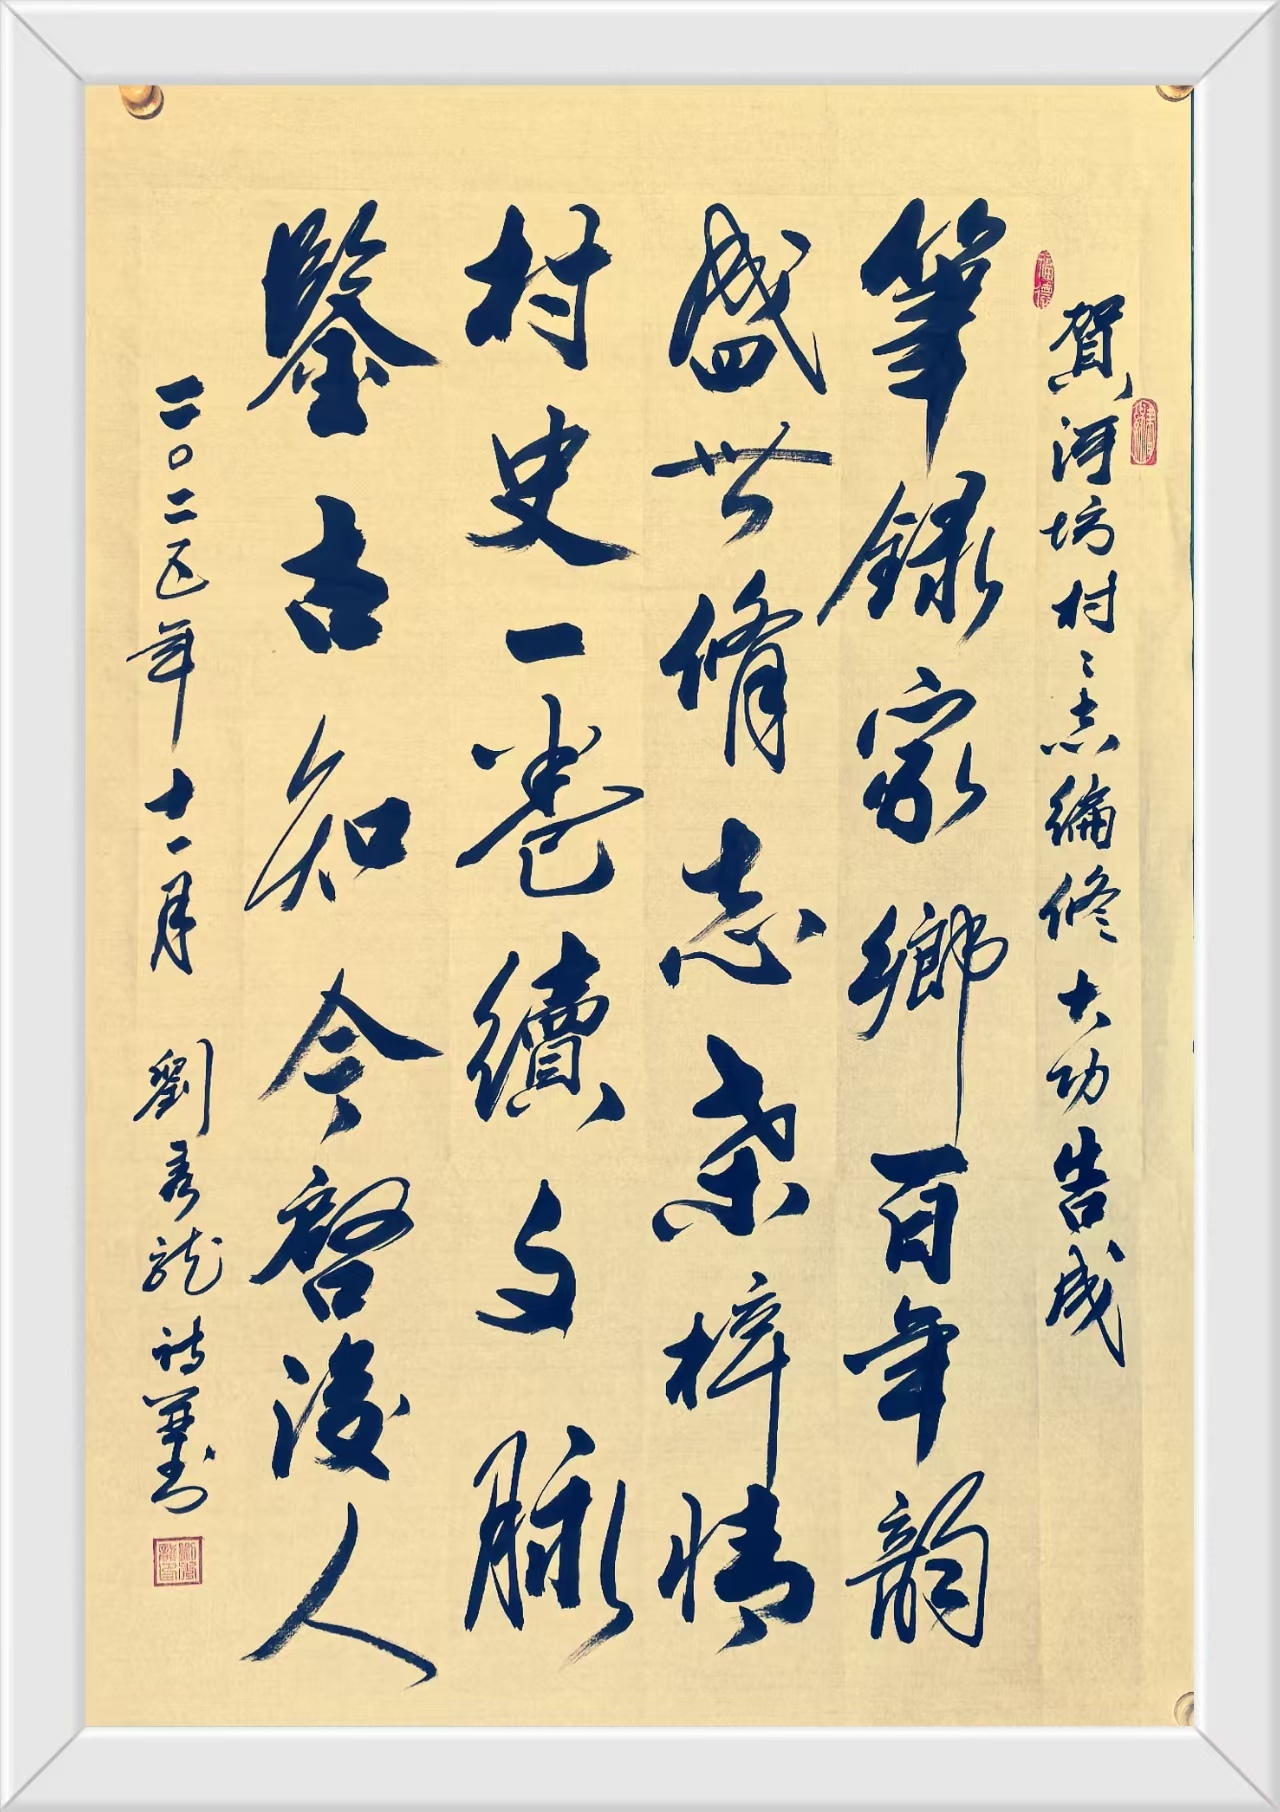 賀河坊村村志編修大功告成
筆録家鄉百年韻
盛世脩志桑梓情
村史一卷續文脉
鑒古知今啓後人
二〇二五年十一月 劉秀龍詩並书